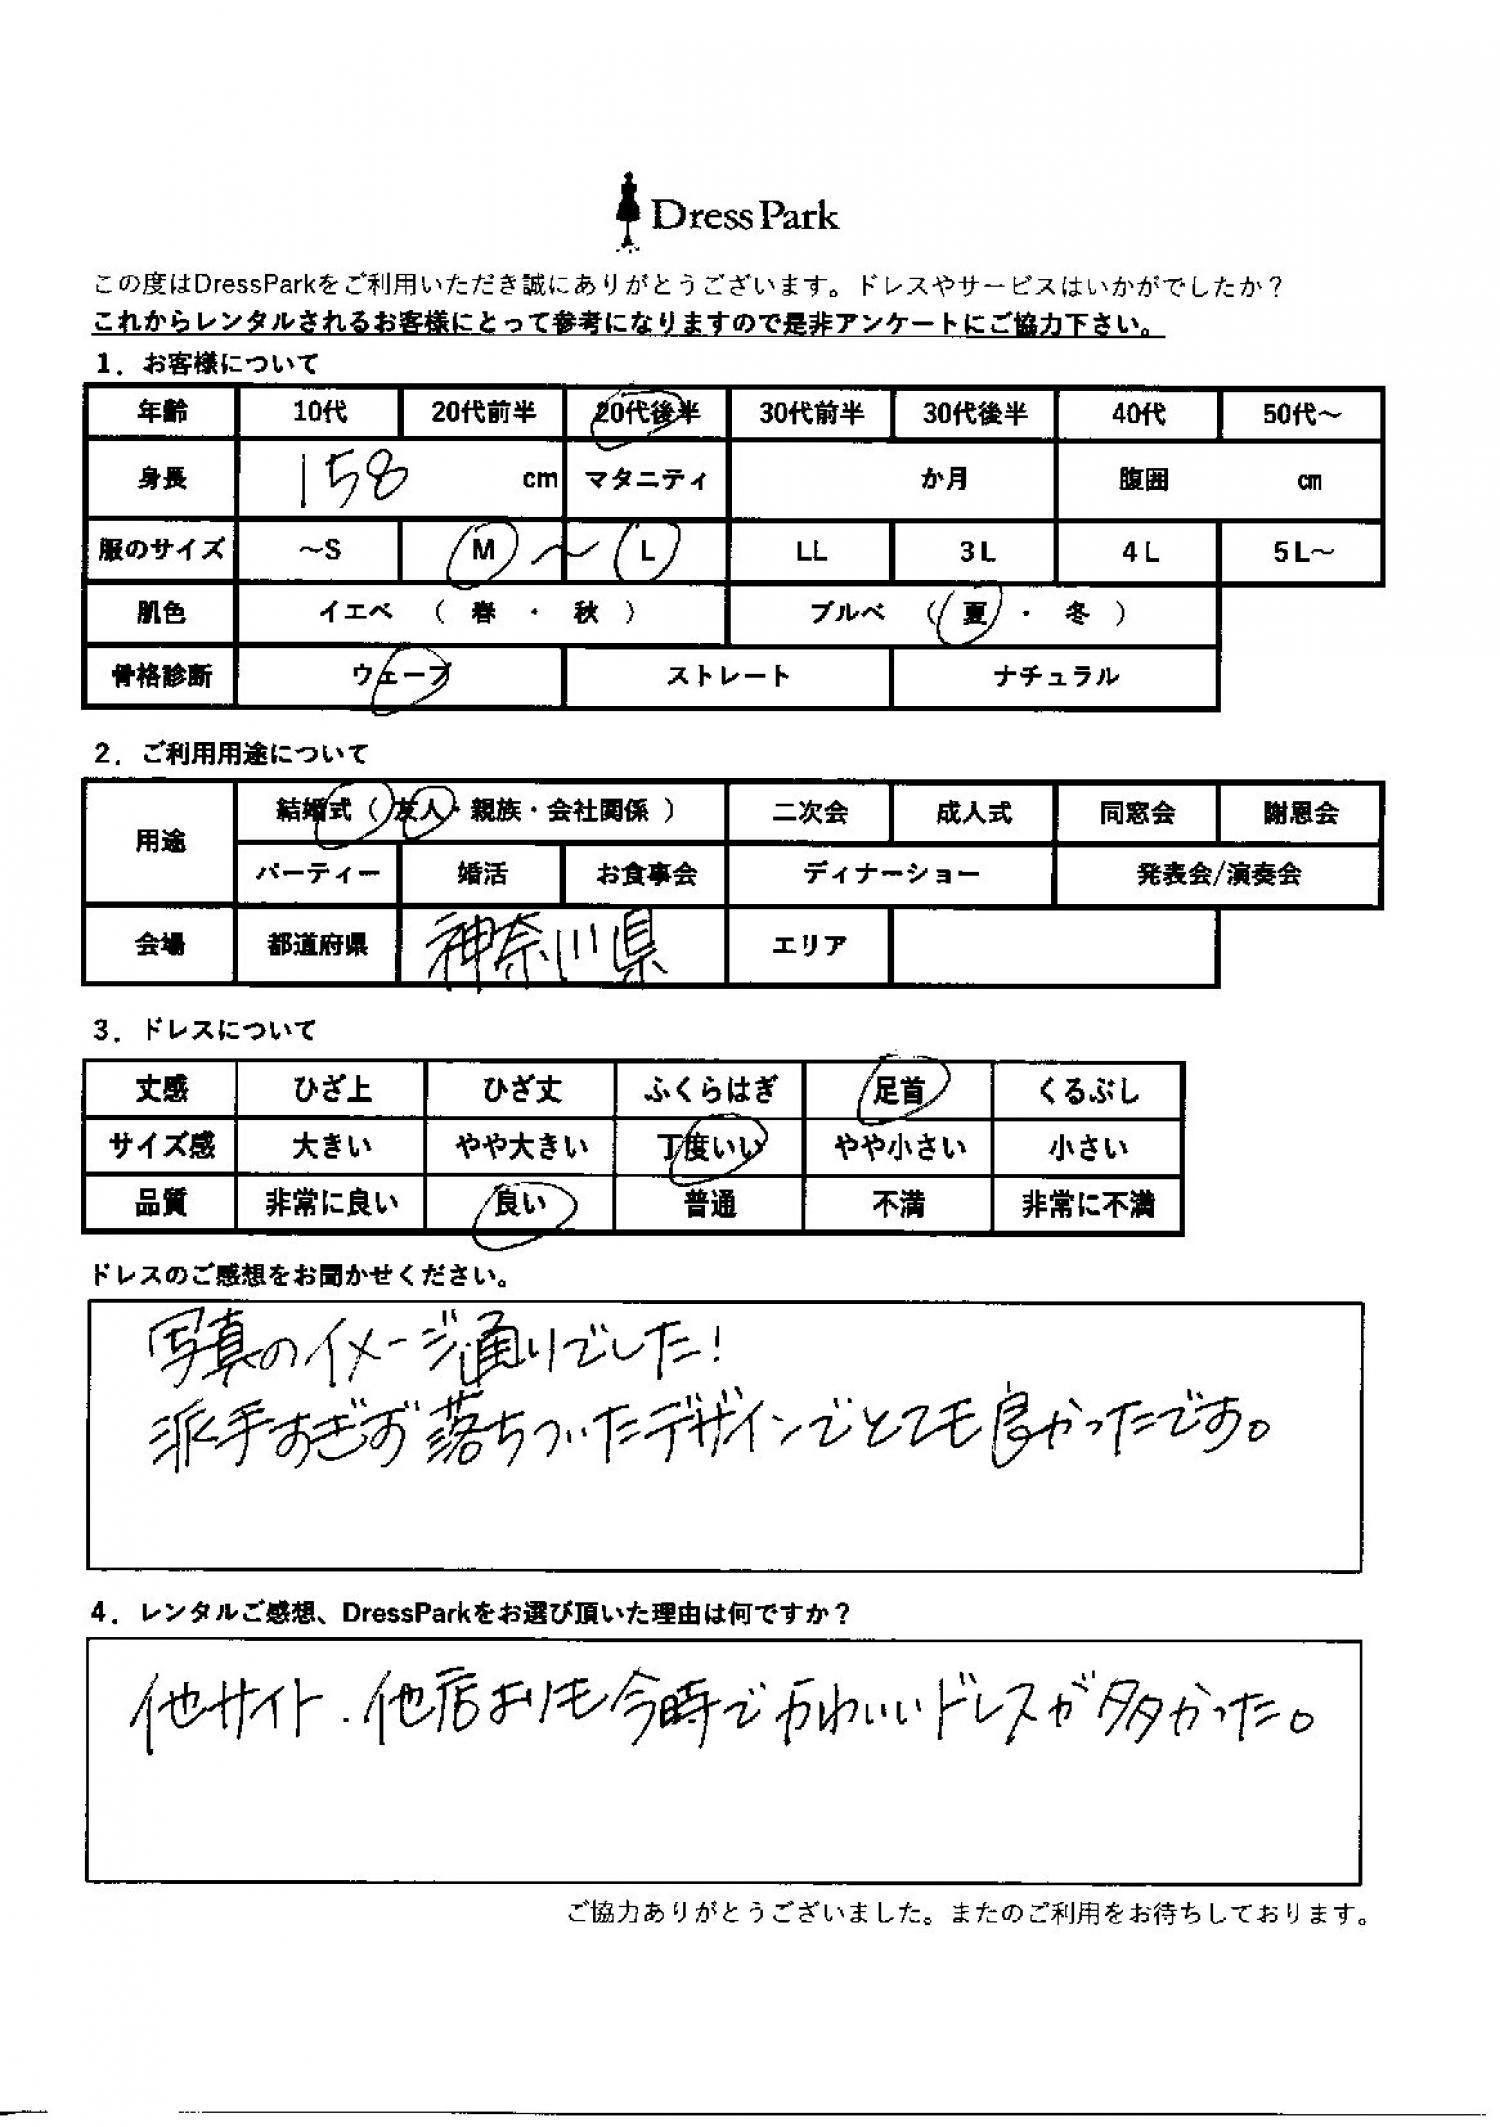 Dress Park
この度はDressParkをご利用いただき誠にありがとうございます。ドレスやサービスはいかがでしたか？
これからレンタルされるお客様にとって参考になりますので是非アンケートにご協力下さい。
1．お客様について
年齢 10代 20代前半 20代後半 30代前半 30代後半 40代 50代～
身長 158 cm マタニティ か月 腹囲 ㎝
服のサイズ ～S M ～ L LL 3L 4L 5L～
肌色 イエベ （ 春 ・ 秋 ） ブルベ （ 夏 ・ 冬 ）
骨格診断 ウェーブ ストレート ナチュラル
2．ご利用用途について
用途 結婚式（ 友人・親族・会社関係 ） 二次会 成人式 同窓会 謝恩会
パーティー 婚活 お食事会 ディナーショー 発表会/演奏会
会場 都道府県 神奈川県 エリア
3．ドレスについて
丈感 ひざ上 ひざ丈 ふくらはぎ 足首 くるぶし
サイズ感 大きい やや大きい 丁度いい やや小さい 小さい
品質 非常に良い 良い 普通 不満 非常に不満
ドレスのご感想をお聞かせください。
写真のイメージ通りでした！
派手すぎず落ちついたデザインでとても良かったです。
4．レンタルご感想、DressParkをお選び頂いた理由は何ですか？
他サイト．他店よりも今時でかわいいドレスが多かった。
ご協力ありがとうございました。またのご利用をお待ちしております。